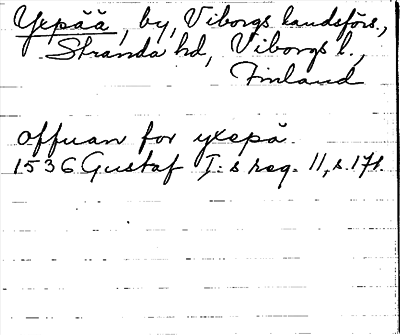 Yxpää, by, Viborgs landsförs.,
Stranda hd, Viborgs l.,
Finland
offuan for yxepä.
1536 Gustaf I:s reg. 11, s. 178.